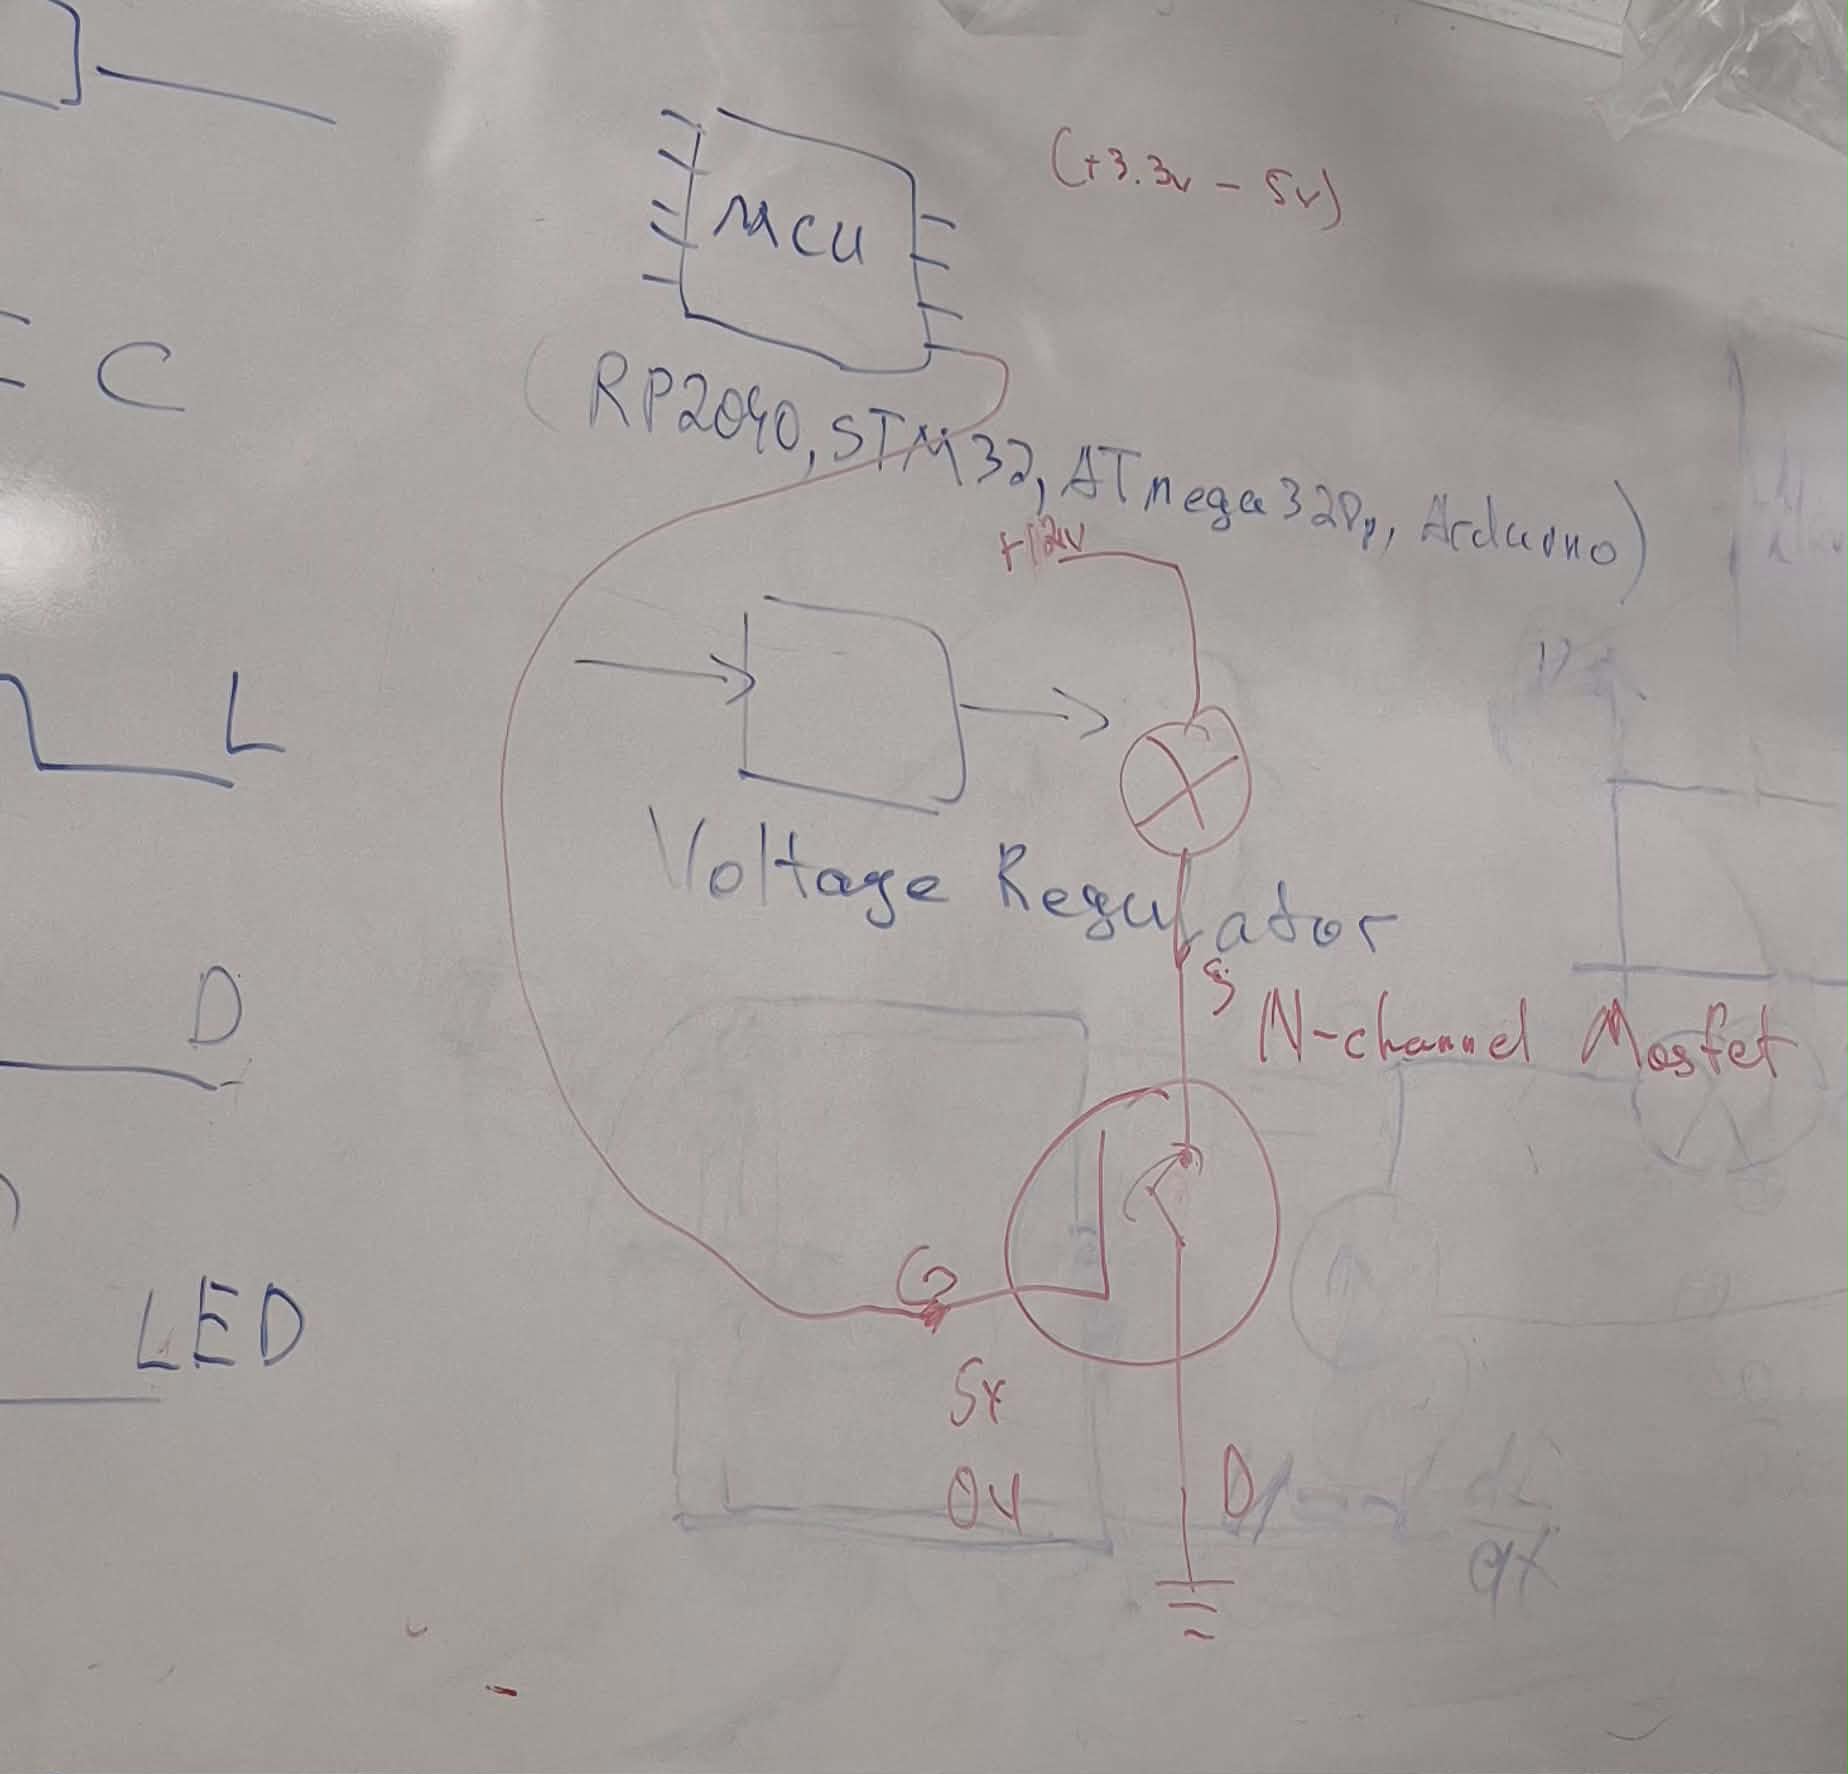 MCU
(+3.3v - 5v)
(RP2040, STM32, ATmega328p, Arduino)
C
+12v
L
Voltage Regulator
S
N-channel Mosfet
D
G
LED
5v
0V
D